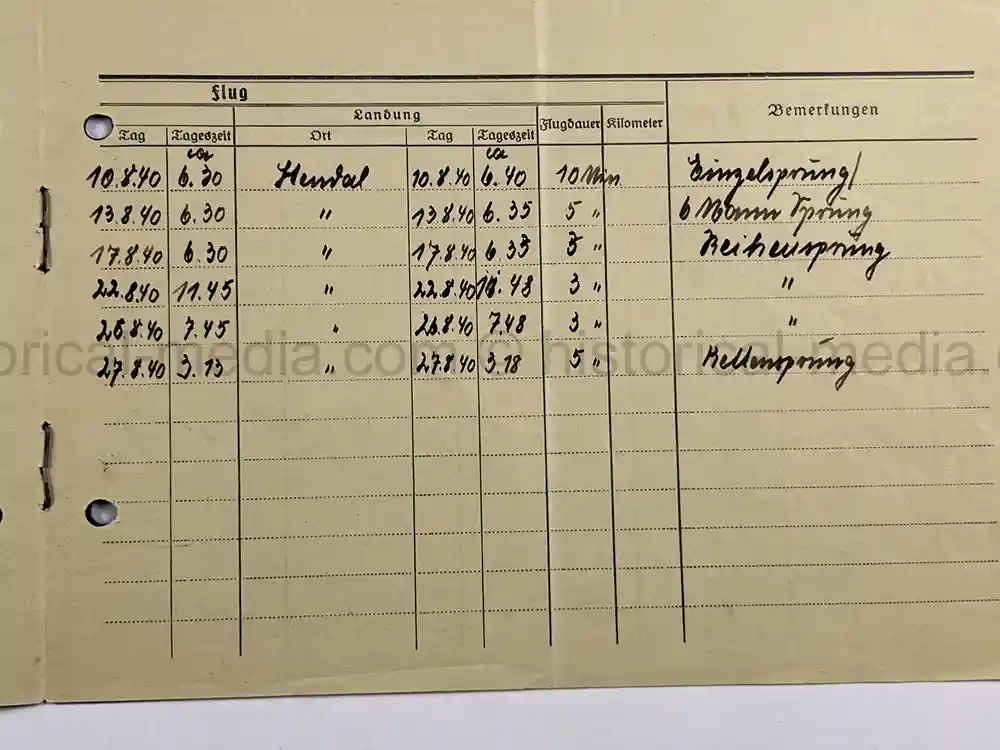 Flug
Landung
Bemerkungen
Tag Tageszeit Ort Tag Tageszeit Flugdauer Kilometer
ca ca
10.8.40 6.30 Stendal 10.8.40 6.40 10 Min Einzelsprung/
13.8.40 6.30 " 13.8.40 6.35 5 " 6 Mann Sprung
17.8.40 6.30 " 17.8.40 6.33 3 " Reihensprung
22.8.40 11.45 " 22.8.40 11.48 3 " "
26.8.40 7.45 " 26.8.40 7.48 3 " "
27.8.40 3.13 " 27.8.40 3.18 5 " Kettensprung
orical-media.com © historical-media